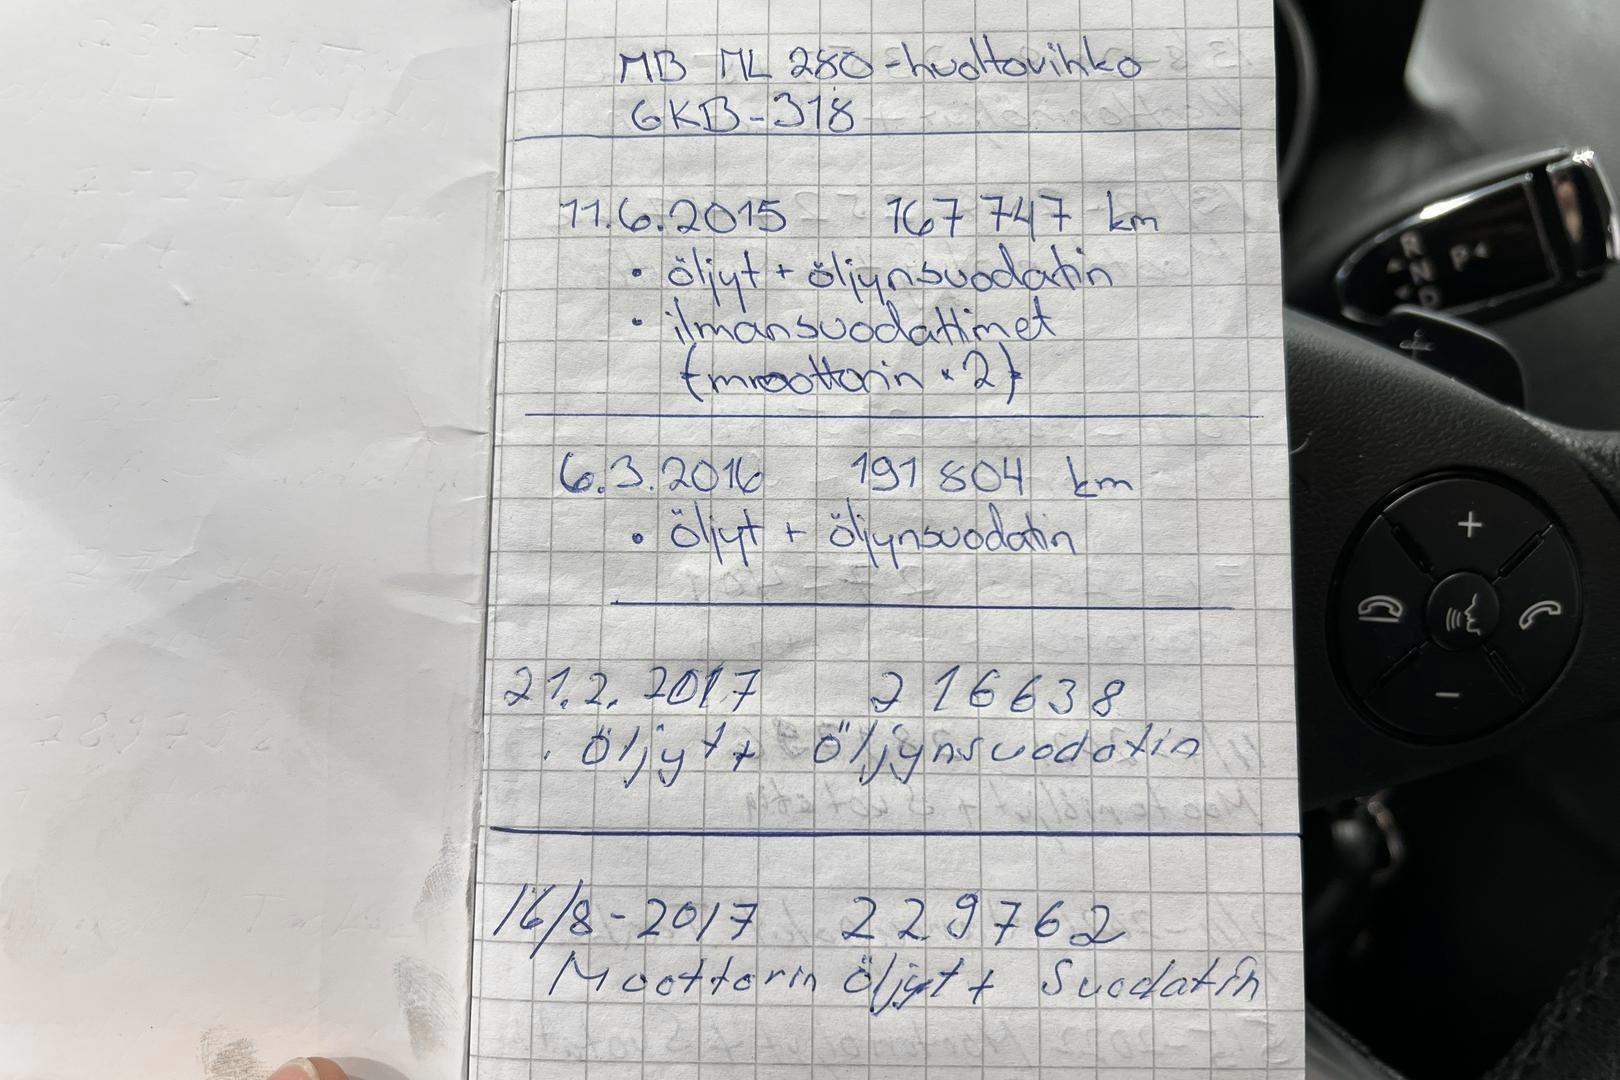 MB ML 280 -huoltovihko
GKB-318
11.6.2015 167 747 km
• öljyt + öljynsuodatin
• ilmansuodattimet
(moottorin x 2)
6.3.2016 191 804 km
• öljyt + öljynsuodatin
21.2.2017 216638
• Öljyt + Öljynsuodatin
16/8-2017 229762
Moottorin öljyt + Suodatin
R
N
D
P
+
-